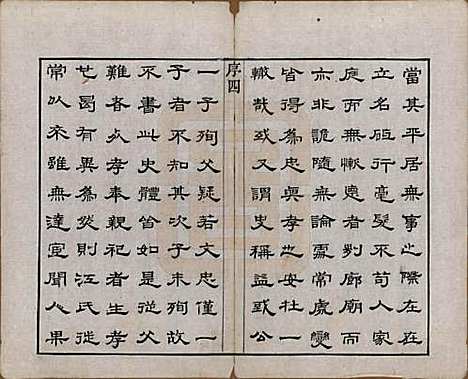 當其平居無事之際在在
立名砥行毫髮不苟人家
庭而無慚遠者剔廊廟而
亦非詭隨無論處常處變
皆得為忠與孝也安社一
轍哉或又謂史稱益或公
序四
一子殉父疑若文忠僅一
子者不知其次子未殉故
不書此史體皆如是從父
難者以孝奉親祀者生孝
也曷有異焉然則江氏從
常以來雖無達宦聞人果